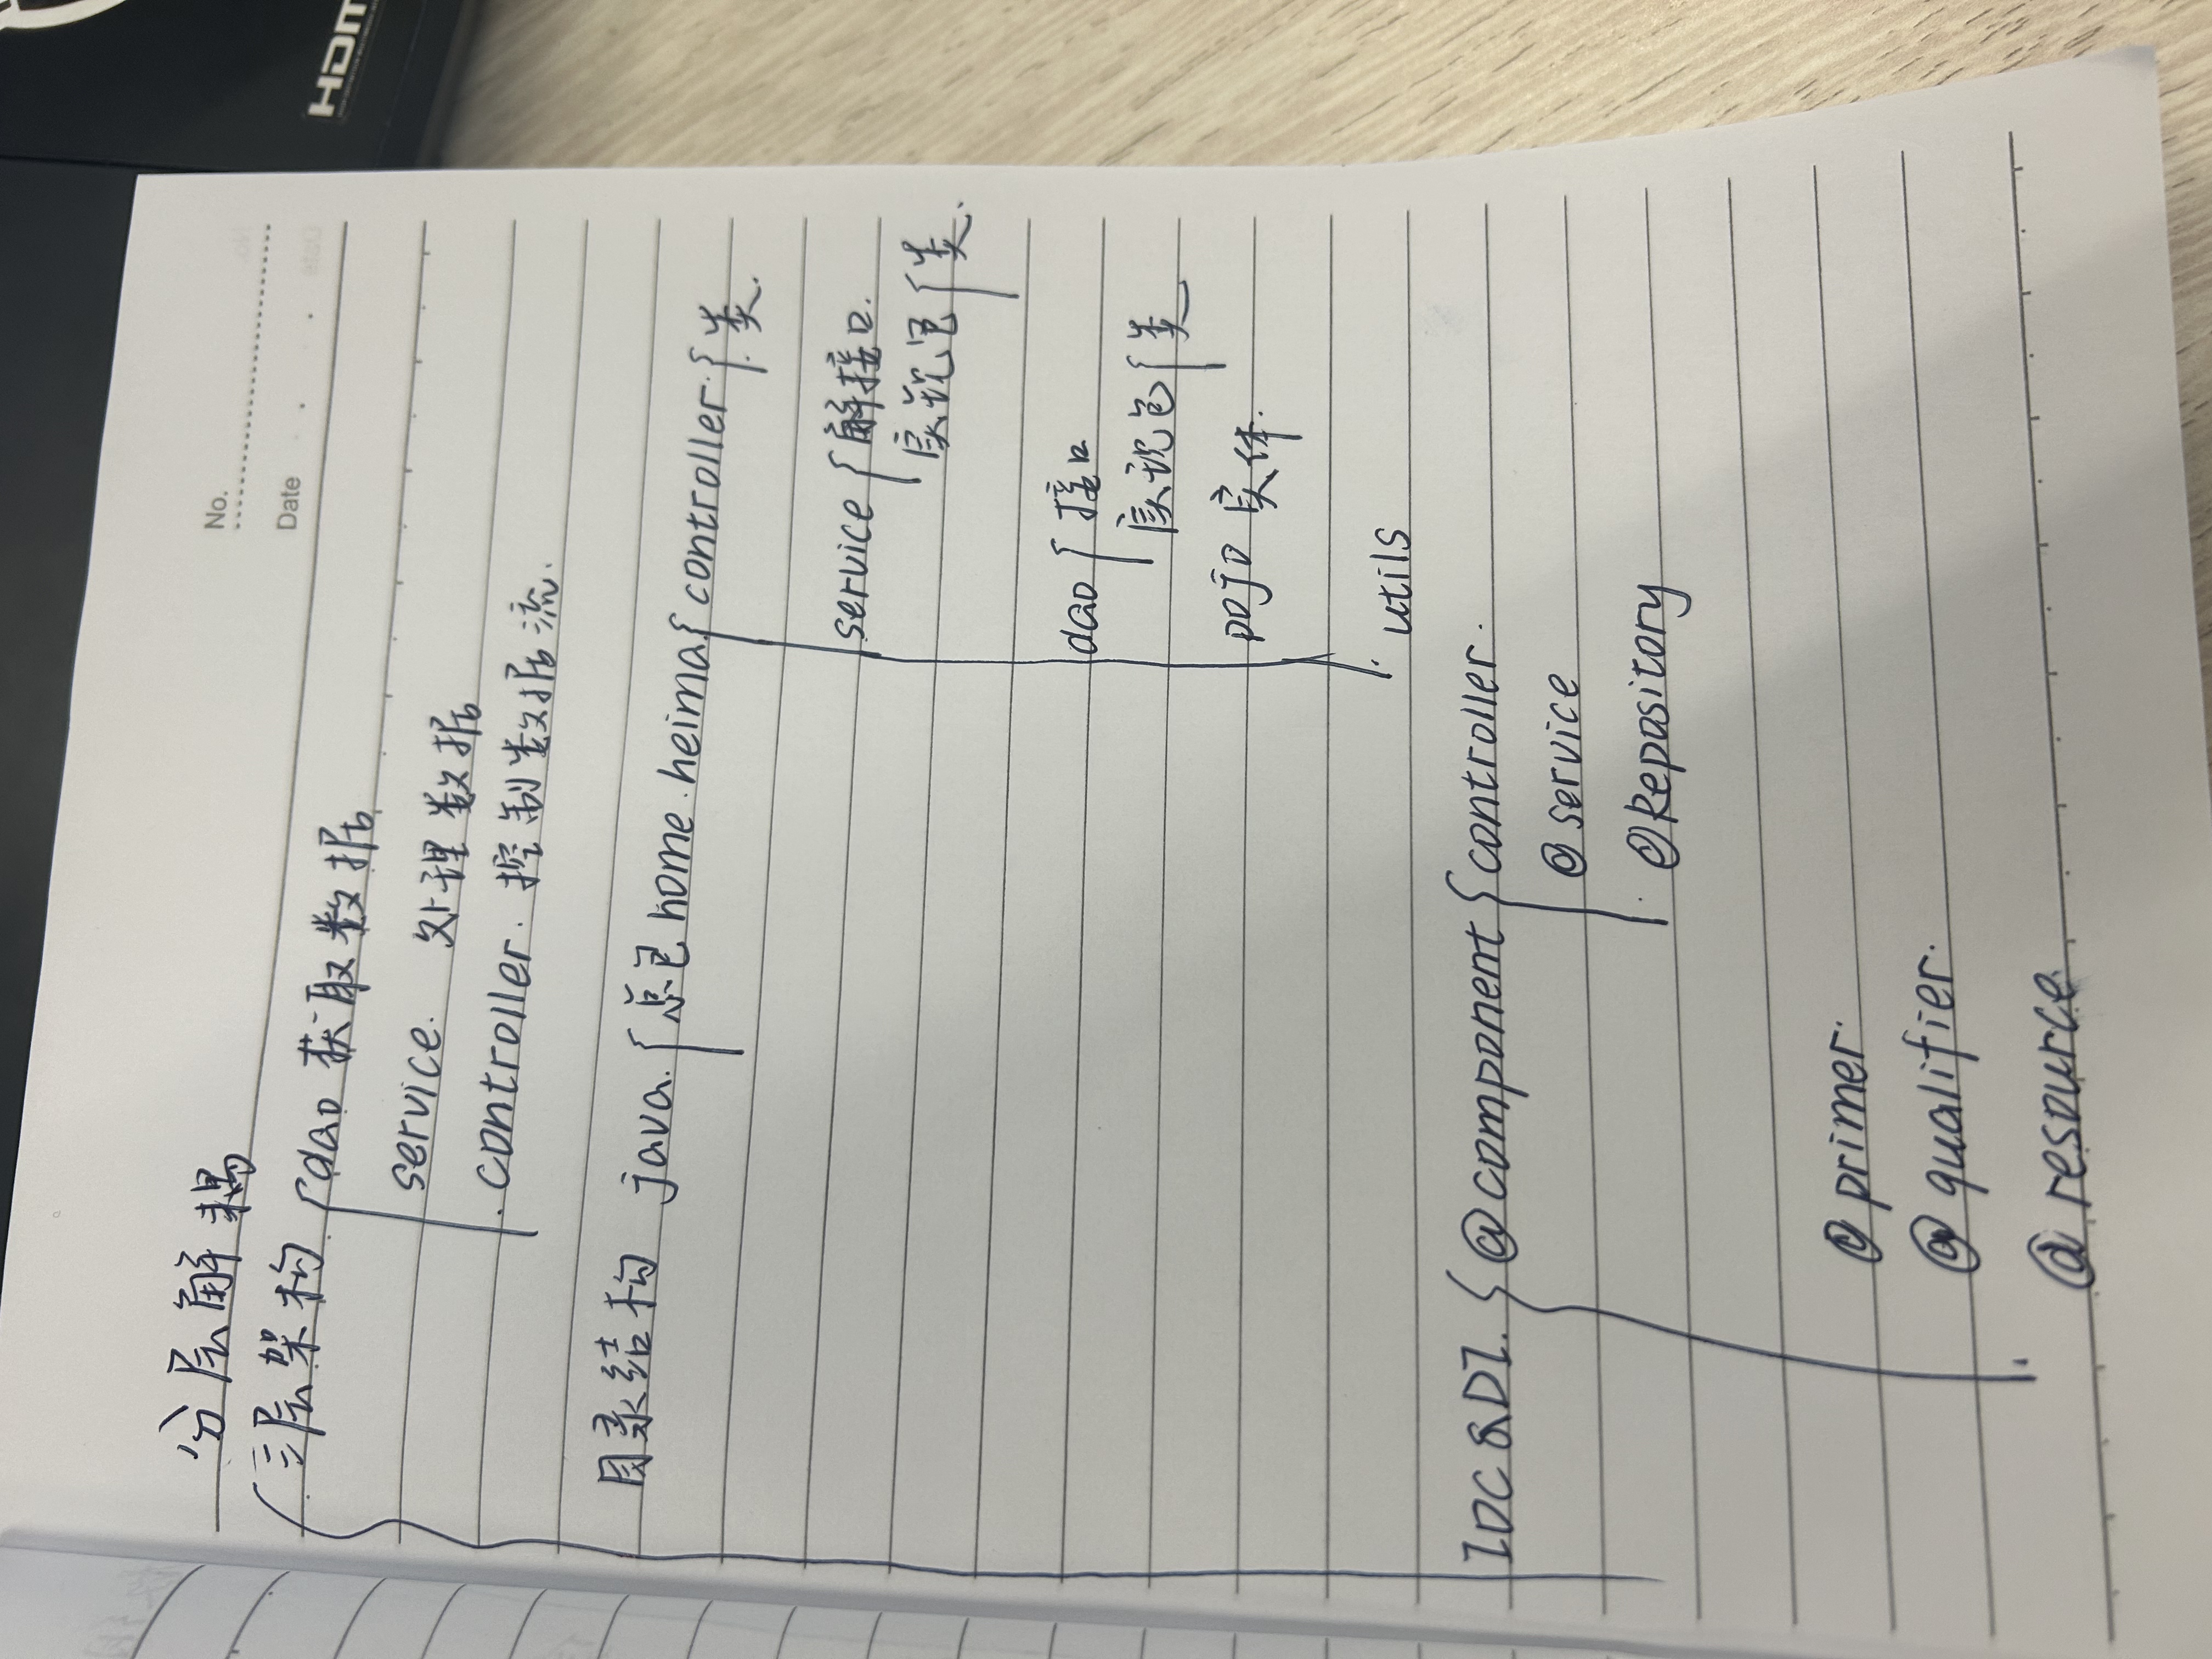 No.
Date
HDM
分层解耦
三层架构 { dao 获取数据
service. 处理数据
controller. 控制数据流.
目录结构 java. { 总包 home.heima { controller. { 类.
service { 解接口.
实现包 { 类.
dao { 接口
实现包 { 类
pojo 实体.
utils
IOC &DI. { @component { controller.
@service
@Repository
@primer.
@qualifier.
@resource.